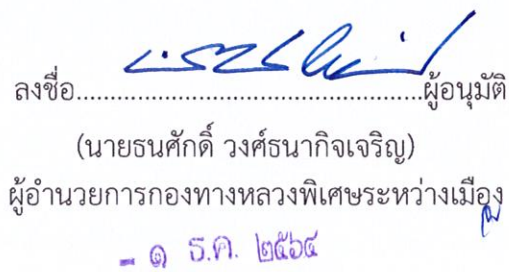 ลงชื่อ................................................ผู้อนุมัติ
(นายธนศักดิ์ วงศ์ธนากิจเจริญ)
ผู้อำนวยการกองทางหลวงพิเศษระหว่างเมือง
- ๑ ธ.ค. ๒๕๖๔